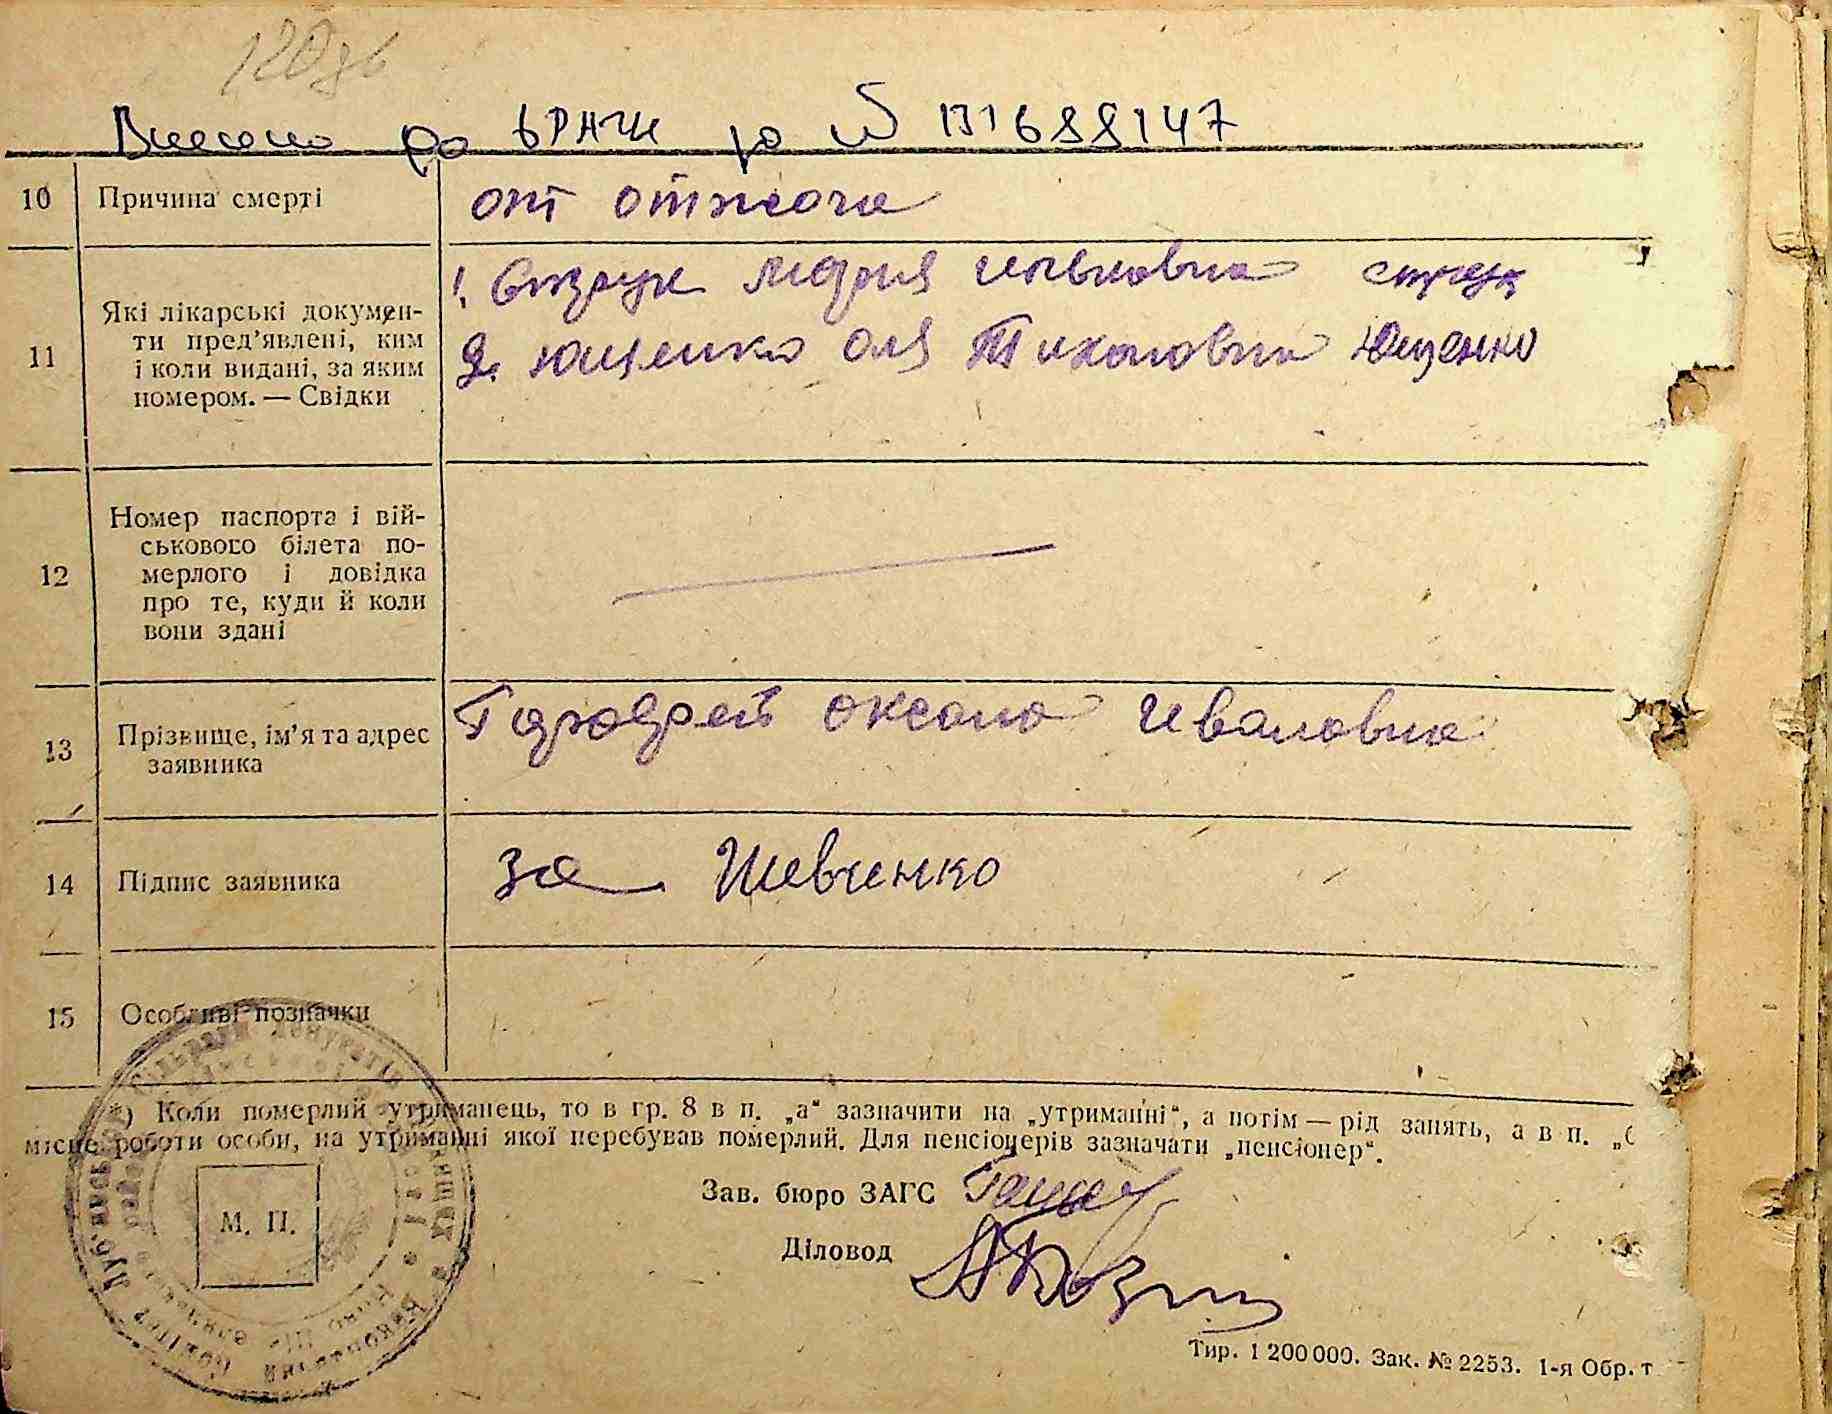 Внесено до ДРАЦС за № 131688147
10 Причина смерті
11 Які лікарські докумен-
ти пред'явлені, ким
і коли видані, за яким
номером. — Свідки
2. Ющенко Оля Тихоновна Ющенко
12 Номер паспорта і вій-
ськового білета по-
мерлого і довідка
про те, куди й коли
вони здані
13 Прізвище, ім'я та адрес
заявника
Оксана Ивановна
14 Підпис заявника
за Шевченко
15 Особливі позначки
*) Коли померлий утриманець, то в гр. 8 в п. „а“ зазначити на „утриманні“, а потім — рід занять, а в п. „
місце роботи особи, на утриманні якої перебував померлий. Для пенсіонерів зазначати „пенсіонер“.
Зав. бюро ЗАГС
М. П.
Діловод
Тир. 1 200 000. Зак. № 2253. 1-я Обр. т